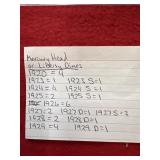 Mercury Head
or Liberty Dimes
1920 = 4
1923 = 1 1923 S = 1
1924 = 2 1924 S = 1
1925 = 2 1925 S = 1
1926 = 6
1927 = 2 1927 D = 1 1927 S = 3
1928 = 2 1928 D = 1
1929 = 4 1929 D = 1